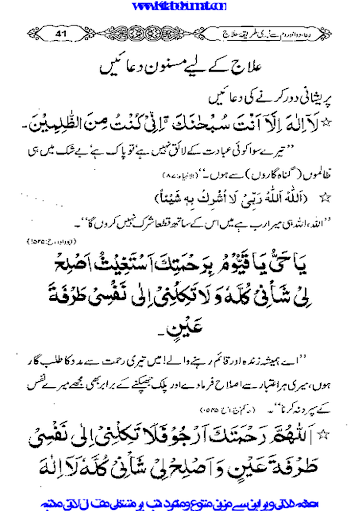 www.KitaboSunnat.com
دعا، دوا اور دم سے نبوی طریقہ علاج
41
علاج کے لیے مسنون دعائیں
پریشانی دور کرنے کی دعائیں
☆ لَآ اِلٰهَ اِلَّآ اَنْتَ سُبْحٰنَكَ اِنِّیْ كُنْتُ مِنَ الظّٰلِمِیْنَ۔
’’تیرے سوا کوئی عبادت کے لائق نہیں ہے تو پاک ہے بے شک میں ہی
ظالموں (گناہ گاروں) سے ہوں۔‘‘ (الانبیاء: ۸۷)
☆ (اَللّٰهُ اَللّٰهُ رَبِّیْ لَا اُشْرِكُ بِهٖ شَیْئًا)
’’اللہ، اللہ ہی میرا رب ہے میں اس کے ساتھ قطعاً شرک نہیں کروں گا‘‘۔
(ابوداود، ح: ۱۵۲۵)
یَا حَیُّ یَا قَیُّوْمُ بِرَحْمَتِكَ اَسْتَغِیْثُ اَصْلِحْ
لِیْ شَاْنِیْ كُلَّهٗ وَلَا تَكِلْنِیْ اِلٰی نَفْسِیْ طَرْفَةَ
عَیْنٍ۔
’’اے ہمیشہ زندہ اور قائم رہنے والے! میں تیری رحمت سے مدد کا طلب گار
ہوں، میری ہر اعتبار سے اصلاح فرما دے اور پلک جھپکنے کے برابر بھی مجھے میرے نفس
کے سپرد نہ کرنا‘‘۔
☆ اَللّٰهُمَّ رَحْمَتَكَ اَرْجُوْ فَلَا تَكِلْنِیْ اِلٰی نَفْسِیْ
طَرْفَةَ عَیْنٍ وَاَصْلِحْ لِیْ شَاْنِیْ كُلَّهٗ لَآ اِلٰهَ